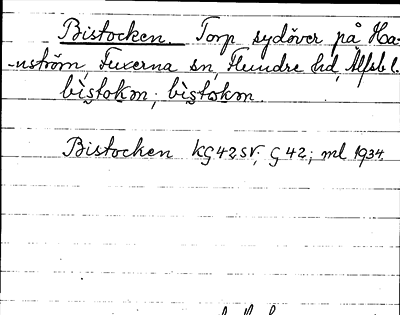 Bistocken. Torp sydöver på Ha-
-nström, Fuxerna sn, Flundre hd, Älfsb l.
bistokɷn, bistokɷn.
Bistocken KG42SV, G 42; ml 1934.